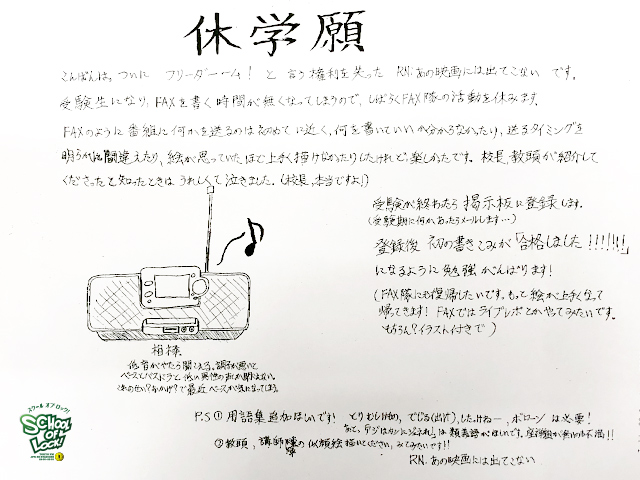 休学願
こんばんは。ついに フリーダーーム！ と 言う権利を失った RN.あの映画には出てこない です。
受験生になり、FAXを書く時間が無くなってしまうので、しばらくFAX隊の活動を休みます。
FAXのように番組に何かを送るのは初めてに近く、何を書いていいか分からなかったり、送るタイミングを
明らかに間違えたり、絵が思っていたほど上手く描けなかったりしたけれど、楽しかったです。校長、教頭が紹介して
くださったと知ったときは、うれしくて泣きました。(校長、本当ですよ！)
受験が終わったら 掲示板に登録します。
(受験期に何かあったらメールします…)
登録後 初の書きこみが「合格しました！！！！！！」
になるように 勉強がんばります！
(FAX隊にも復帰したいです。もっと絵が上手くなって
帰ってきます！FAXではライブレポとかやってみたいです。
もちろん？イラスト付きで)
相棒
低音がやたら聞こえる。調子が悪いと
ベースとバスドラと低い男性の声しか聞こえない。
(これのせい？おかげ？で最近ベースが気になってしまう。
スクール オブ ロック！
SCHOOL OF LOCK!
P.S ① 用語集追加ほしいです！ とりわけ、でじる(出汁)、したっけねー、ボローン は必要！
② 教頭、講師陣の似顔絵描いてください。みてみたいです!!
RN.あの映画には出てこない